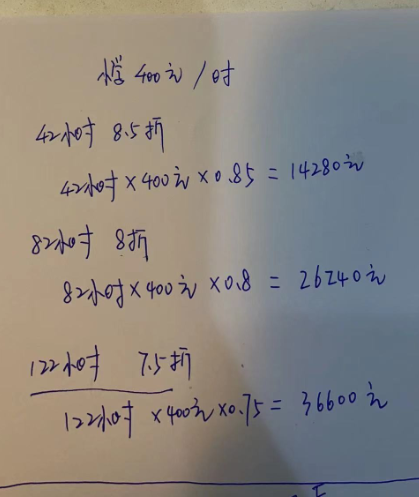 小学 400元/时
42小时 8.5折
42小时×400元×0.85=14280元
82小时 8折
82小时×400元×0.8=26240元
122小时 7.5折
122小时×400元×0.75=36600元